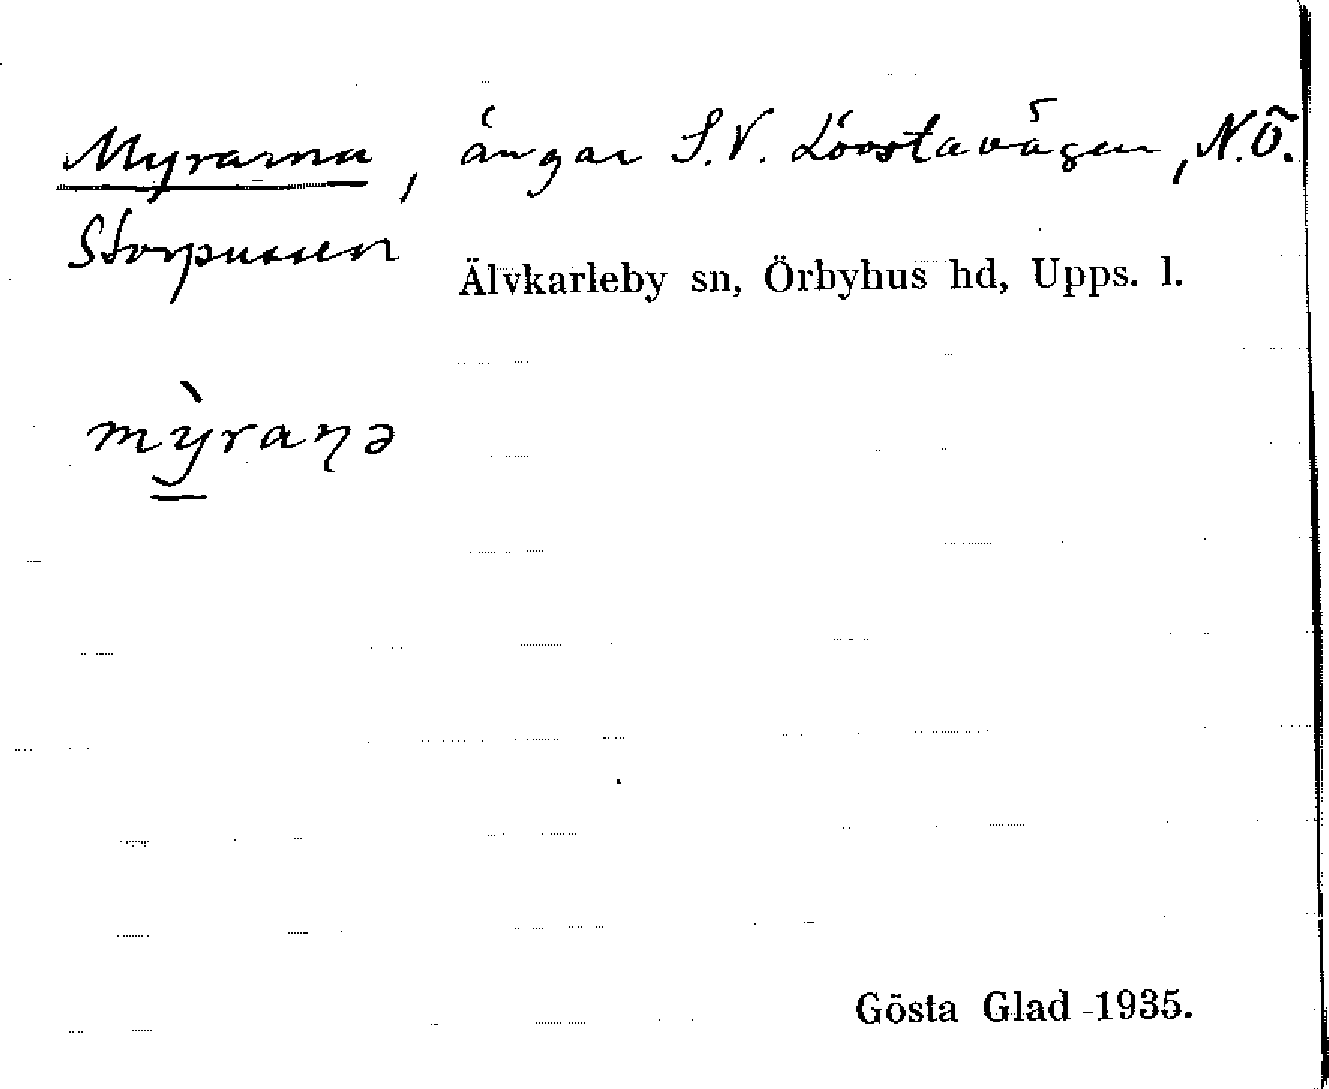 Myrarna, ängar S.V. Lövstavägen, N.Ö.
Storpussen
Älvkarleby sn, Örbyhus hd, Upps. l.
mỳraɳə
Gösta Glad 1935.